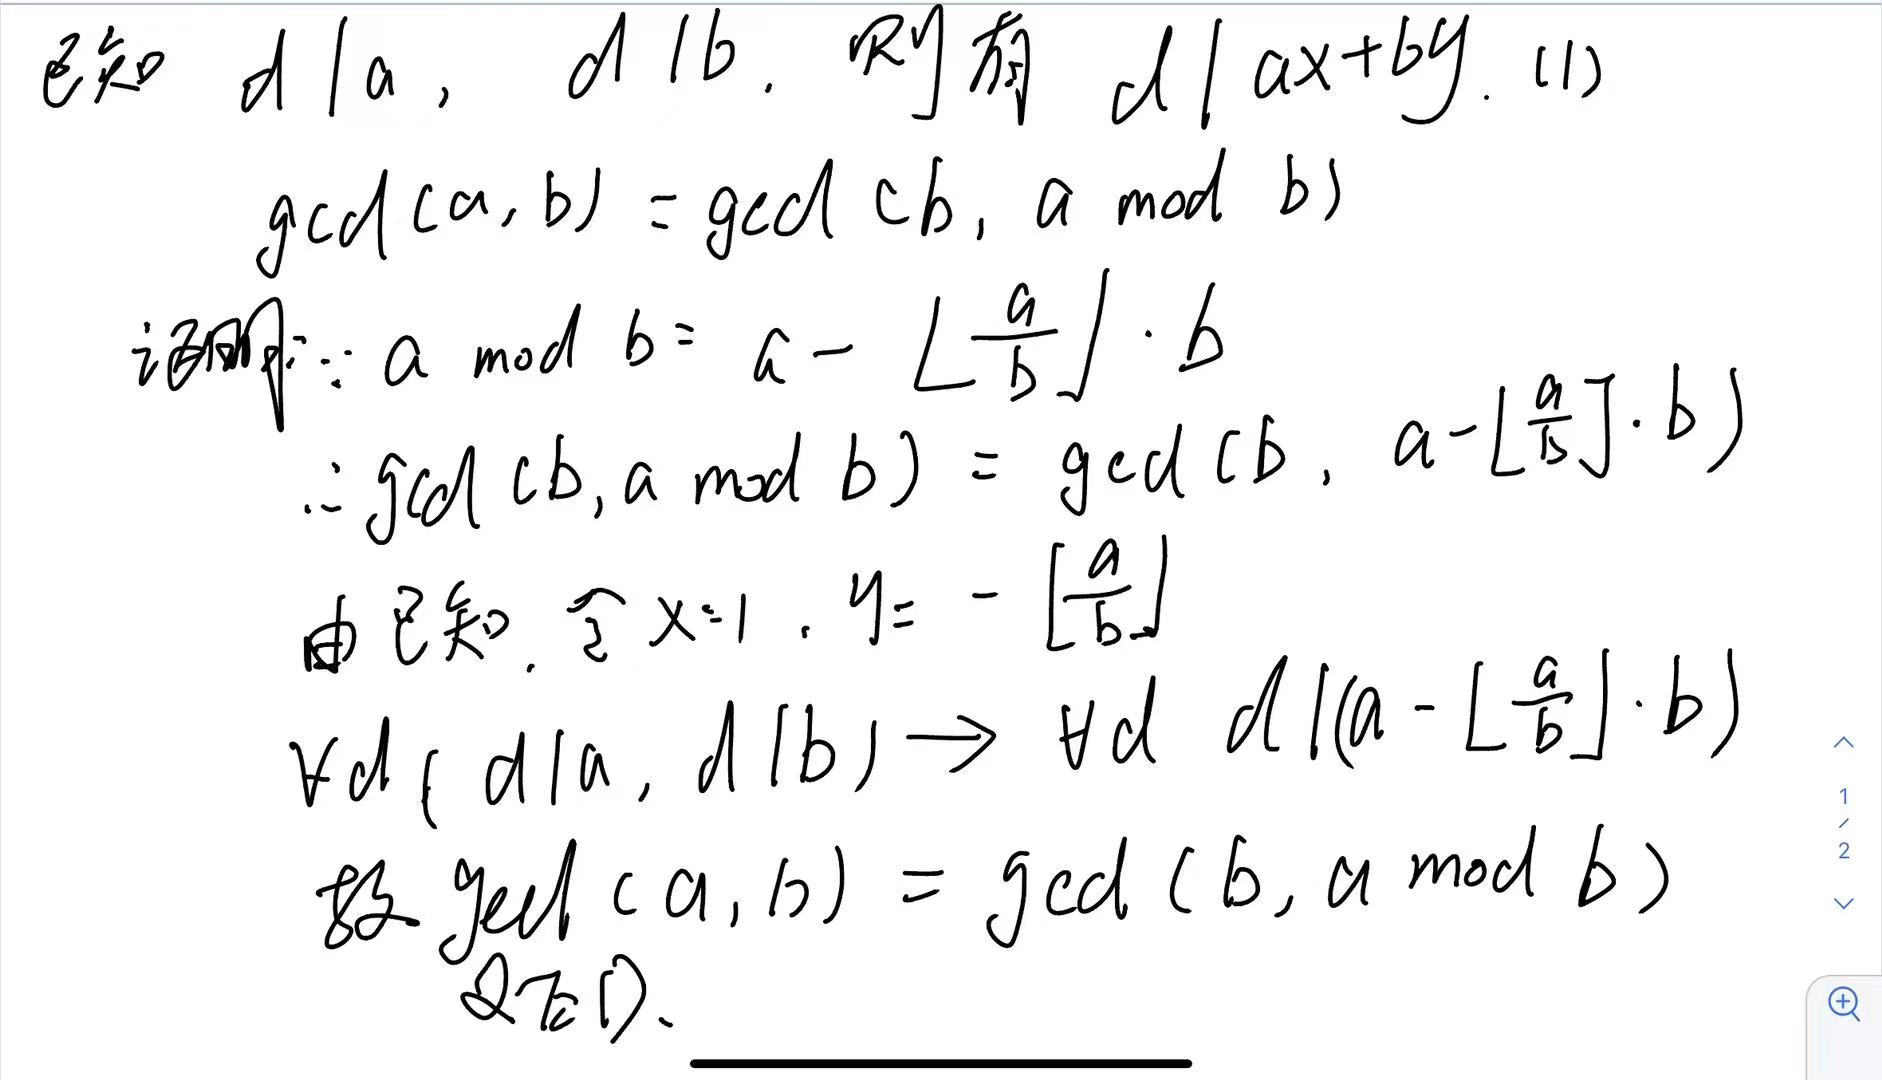 已知 d|a, d|b. 则有 d|ax+by. (1)
gcd(a, b) = gcd(b, a mod b)
证明: ∵ a mod b = a - ⌊a/b⌋·b
∴ gcd(b, a mod b) = gcd(b, a-⌊a/b⌋·b)
由已知, 令 x=1, y= -⌊a/b⌋
∀d(d|a, d|b) → ∀d d|(a-⌊a/b⌋·b)
故 gcd(a, b) = gcd(b, a mod b)
QED.
1
/
2